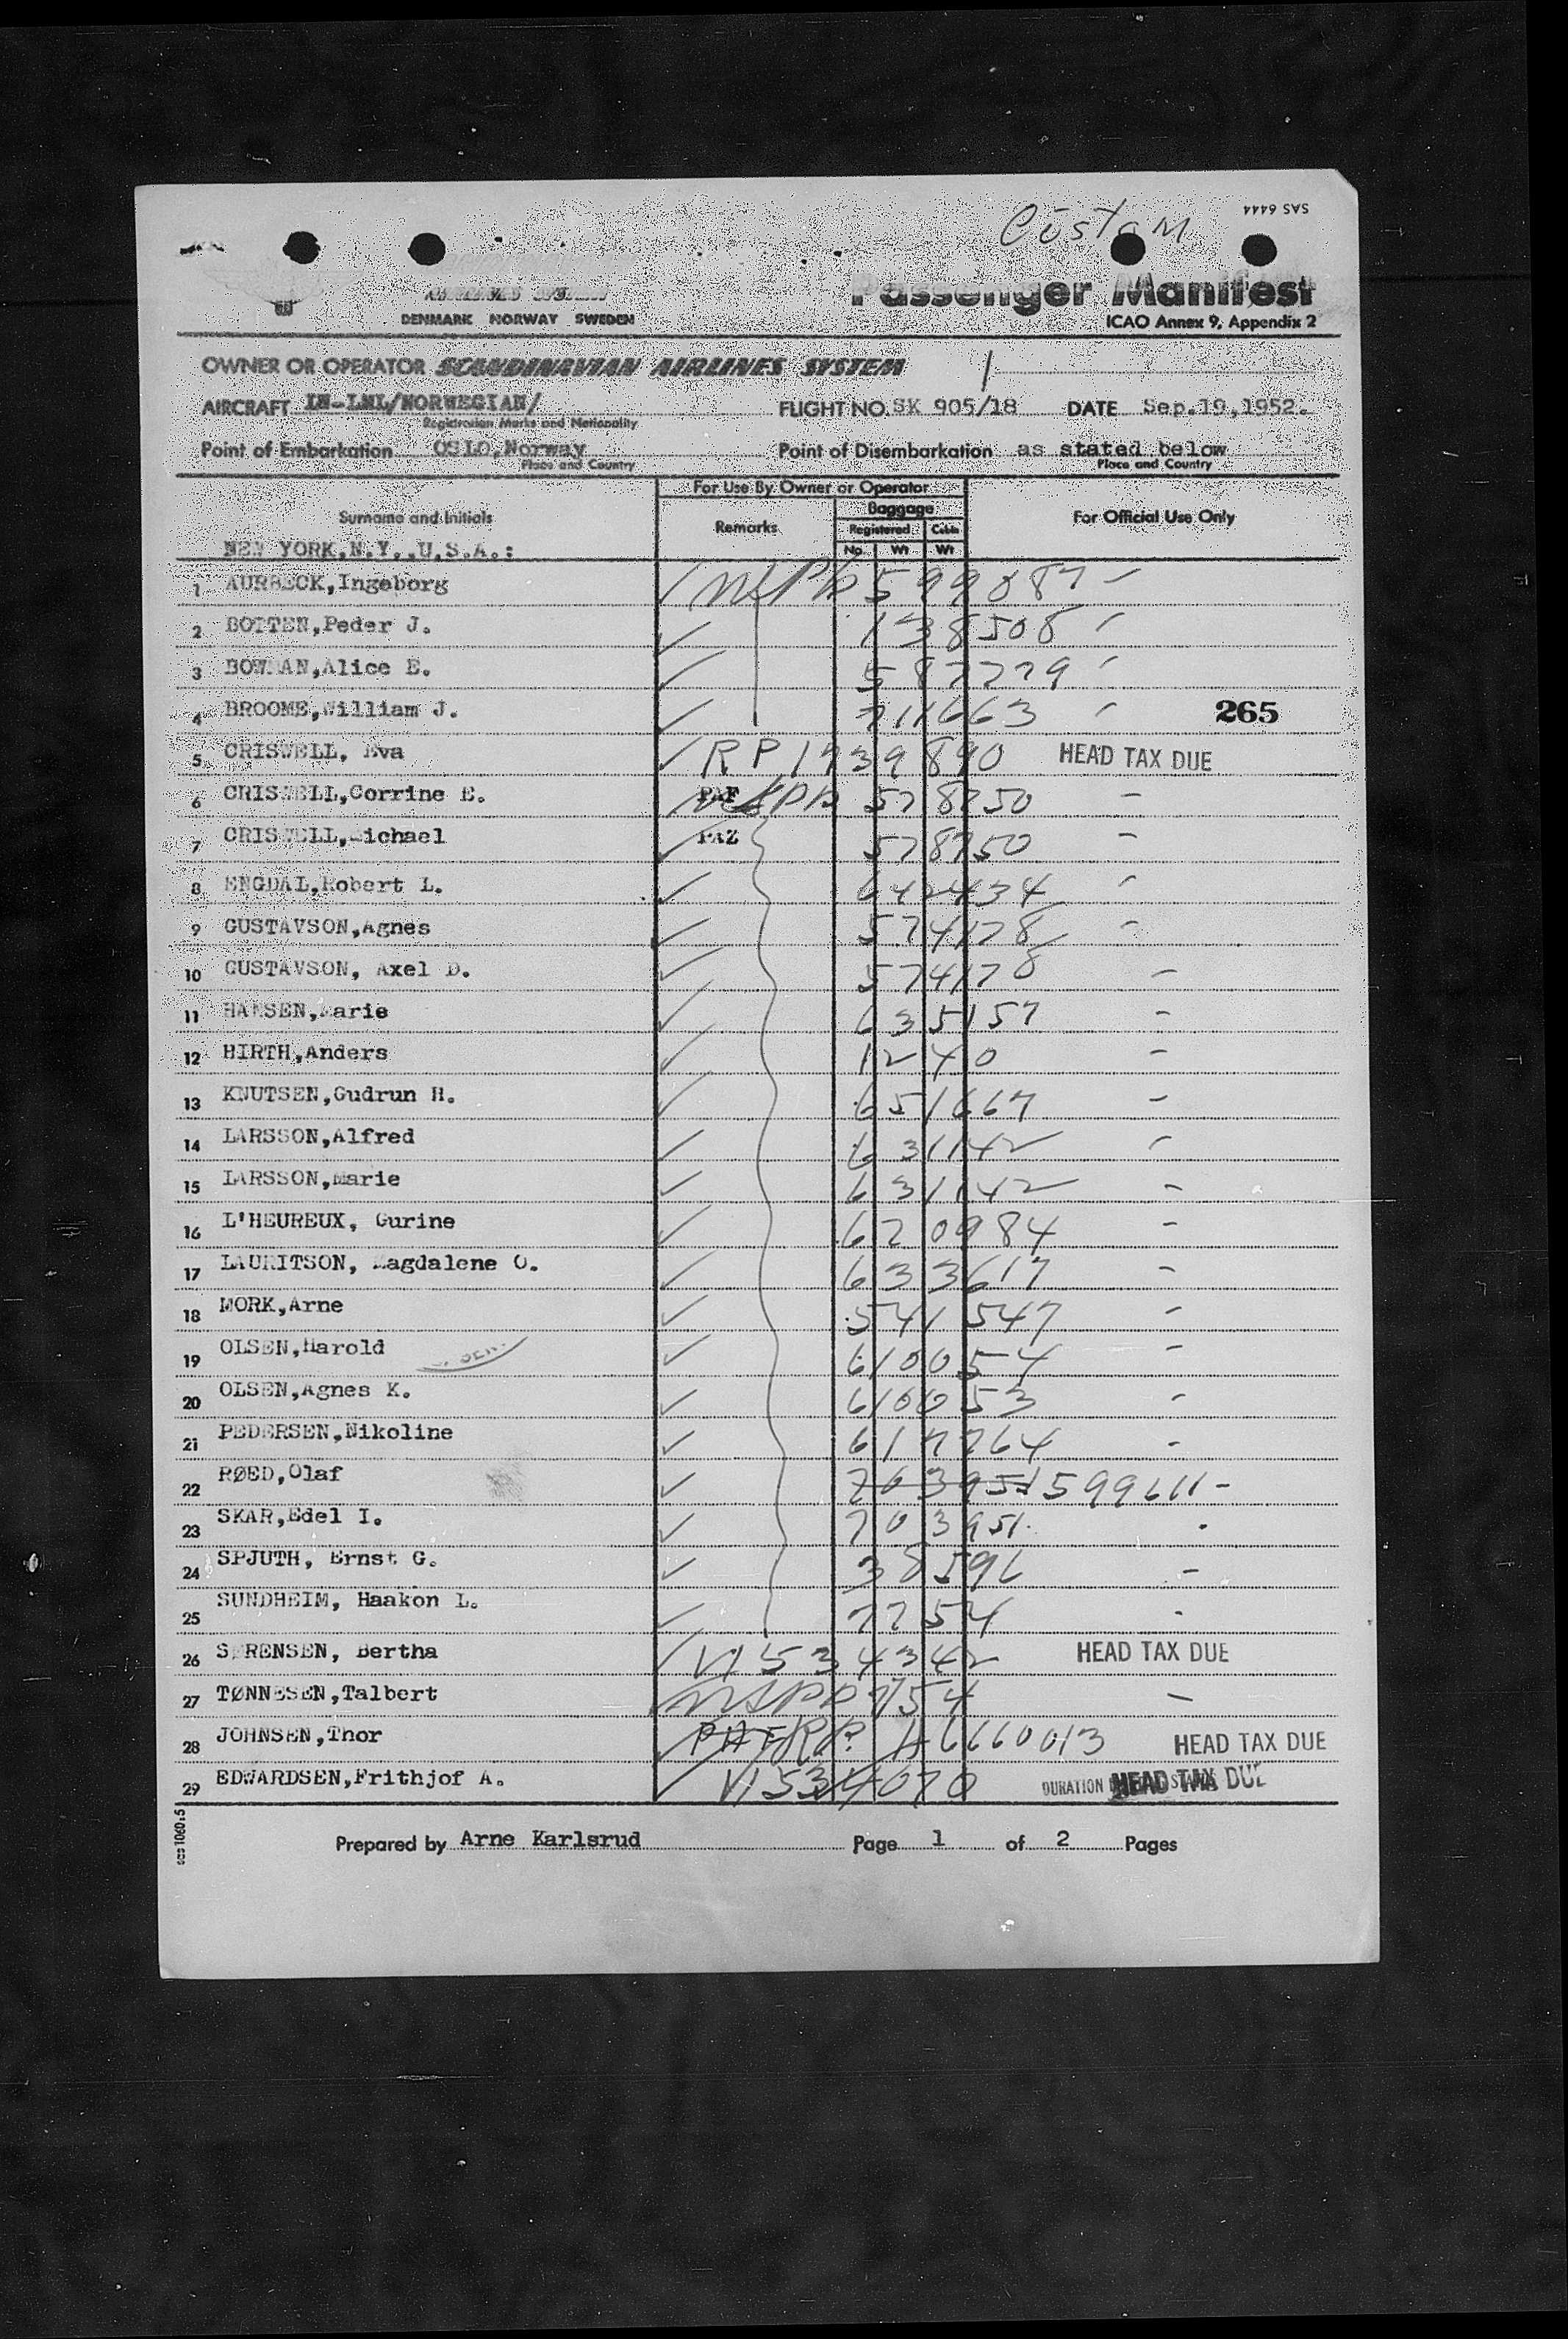 SAS 6444
Custom
Passenger Manifest
DENMARK NORWAY SWEDEN
ICAO Annex 9, Appendix 2
OWNER OR OPERATOR SCANDINAVIAN AIRLINES SYSTEM
AIRCRAFT LN-LML/NORWEGIAN/ FLIGHT NO. SK 905/18 DATE Sep.19,1952.
Registration Marks and Nationality
Point of Embarkation OSLO,Norway Point of Disembarkation as stated below
Place and Country Place and Country
For Use By Owner or Operator
Surname and Initials Remarks Baggage For Official Use Only
Registered Cabin
NEW YORK,N.Y.,U.S.A.: No. Wt Wt
1 AURBECK,Ingeborg 599087 -
2 BOTTEN,Peder J. 138508
3 BOWMAN,Alice E.
4 BROOME,William J. 711663 265
5 CRISWELL, Eva RP 1739890 HEAD TAX DUE
6 CRISWELL,Corrine E. PAF 578750 -
7 CRISWELL,Michael PAZ 578750 -
8 ENGDAL,Robert L. 642434
9 GUSTAVSON,Agnes 574178 -
10 GUSTAVSON, Axel D. 574178 -
11 HANSEN,Marie 635157 -
12 HIRTH,Anders 1240 -
13 KNUTSEN,Gudrun H. 651667 -
14 LARSSON,Alfred 631142
15 LARSSON,Marie 631142 -
16 L'HEUREUX, Gurine 620984 -
17 LAURITSON, Magdalene O. 633617 -
18 MORK,Arne 541547 -
19 OLSEN,Harold 610054 -
20 OLSEN,Agnes K. 610053 -
21 PEDERSEN,Nikoline 617764 -
22 RØED,Olaf 703951 599611 -
23 SKAR,Edel I. 703951
24 SPJUTH, Ernst G. 38596 -
25 SUNDHEIM, Haakon L. 7754
26 SØRENSEN, Bertha V1534342 HEAD TAX DUE
27 TØNNESEN,Talbert 754 -
28 JOHNSEN,Thor PAF RP. A6660013 HEAD TAX DUE
29 EDWARDSEN,Frithjof A. V1534070 DURATION HEAD TAX DUE
Prepared by Arne Karlsrud Page 1 of 2 Pages